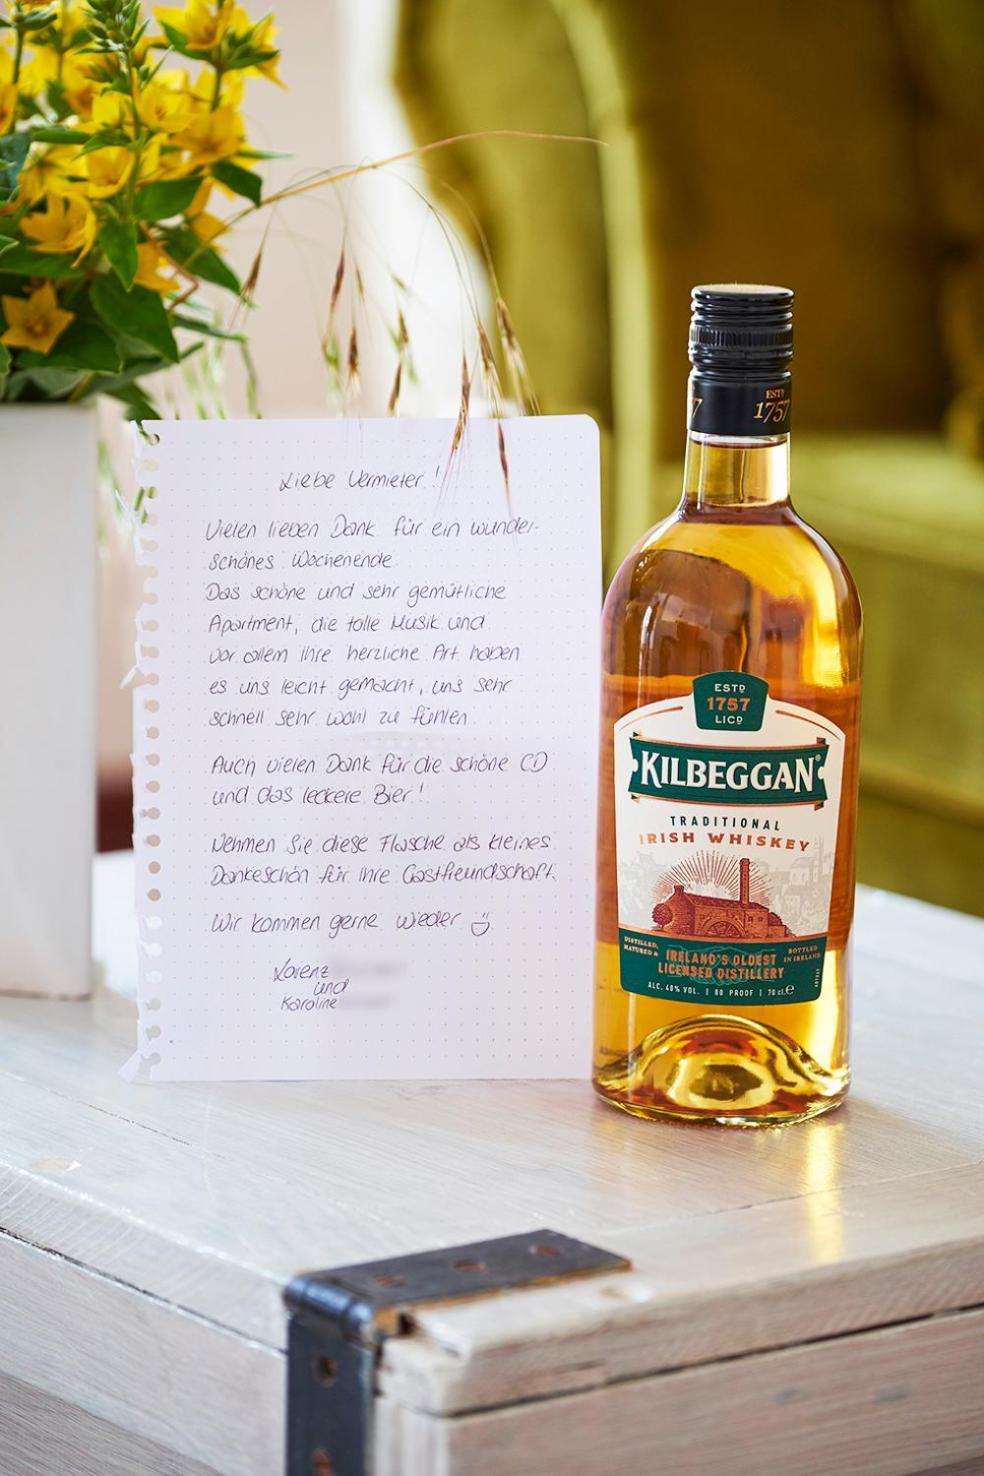 Liebe Vermieter!
Vielen lieben Dank für ein wunder-
schönes Wochenende.
Das schöne und sehr gemütliche
Apartment, die tolle Musik und
vor allem Ihre herzliche Art haben
es uns leicht gemacht, uns sehr
schnell sehr wohl zu fühlen.
Auch vielen Dank für die schöne CD
und das leckere Bier!
Nehmen Sie diese Flasche als kleines
Dankeschön für Ihre Gastfreundschaft.
Wir kommen gerne wieder
Lorenz
und
Karoline
ESTD
1757
ESTD
1757
LICD
KILBEGGAN®
TRADITIONAL
IRISH WHISKEY
DISTILLED, MATURED &
BOTTLED IN IRELAND
IRELAND'S OLDEST
LICENSED DISTILLERY
ALC. 40% VOL. | 80 PROOF | 70 cl.e